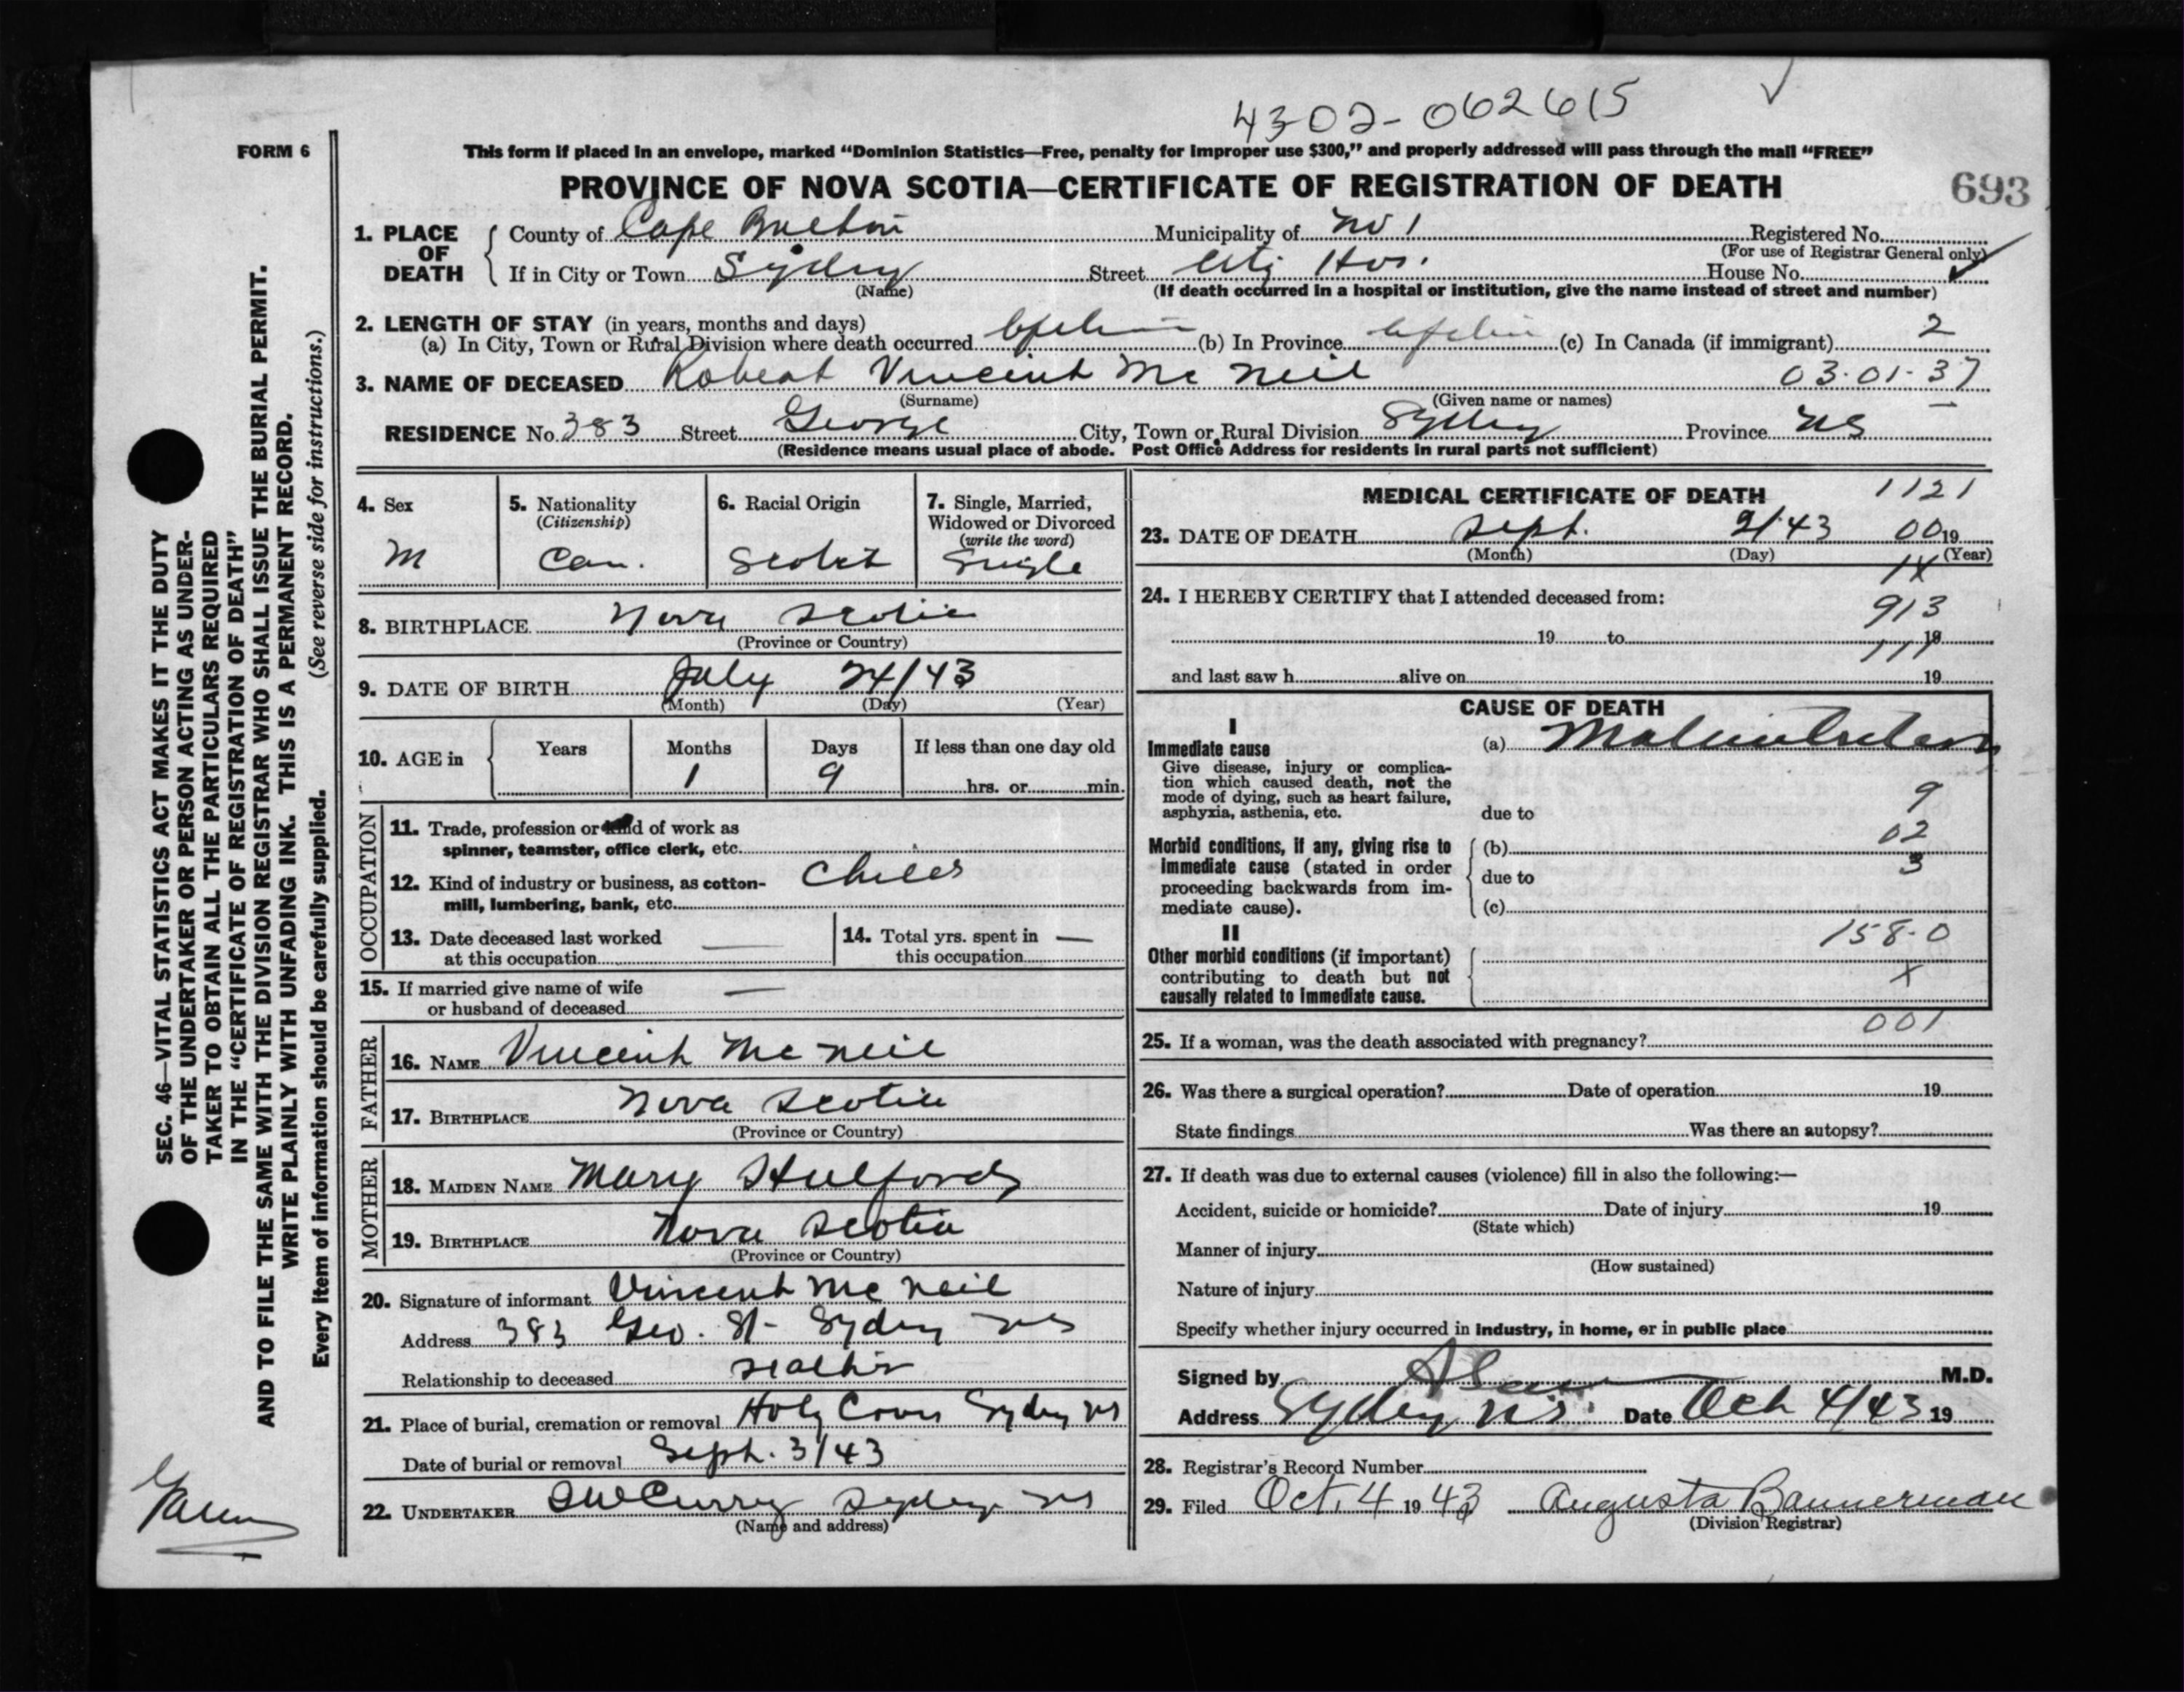 43-02-062615
FORM 6
This form if placed in an envelope, marked “Dominion Statistics—Free, penalty for improper use $300,” and properly addressed will pass through the mail “FREE”
PROVINCE OF NOVA SCOTIA—CERTIFICATE OF REGISTRATION OF DEATH
693
1. PLACE OF DEATH
County of Cape Breton Municipality of No 1 Registered No.
(For use of Registrar General only)
If in City or Town Sydney Street City Hos. House No.
(Name) (If death occurred in a hospital or institution, give the name instead of street and number)
2. LENGTH OF STAY (in years, months and days)
(a) In City, Town or Rural Division where death occurred (b) In Province (c) In Canada (if immigrant) 2
3. NAME OF DECEASED Robert Vincent Mc Neil 03-01-37
(Surname) (Given name or names)
RESIDENCE No. 383 Street George City, Town or Rural Division Sydney Province NS
(Residence means usual place of abode. Post Office Address for residents in rural parts not sufficient)
4. Sex
M
5. Nationality
(Citizenship)
Can.
6. Racial Origin
Scotch
7. Single, Married,
Widowed or Divorced
(write the word)
Single
8. BIRTHPLACE Nova Scotia
(Province or Country)
9. DATE OF BIRTH July 24/43
(Month) (Day) (Year)
10. AGE in Years Months Days If less than one day old
1 9 hrs. or min.
OCCUPATION
11. Trade, profession or kind of work as
spinner, teamster, office clerk, etc.
12. Kind of industry or business, as cotton-
mill, lumbering, bank, etc.
13. Date deceased last worked
at this occupation
14. Total yrs. spent in
this occupation
15. If married give name of wife
or husband of deceased
FATHER
16. NAME Vincent Mc Neil
17. BIRTHPLACE Nova Scotia
(Province or Country)
MOTHER
18. MAIDEN NAME Mary
19. BIRTHPLACE Nova Scotia
(Province or Country)
20. Signature of informant Vincent Mc Neil
Address 383 Geo. St- Sydney NS
Relationship to deceased
21. Place of burial, cremation or removal Holy Cross Sydney NS
Date of burial or removal Sept. 3/43
22. UNDERTAKER Curry Sydney NS
(Name and address)
MEDICAL CERTIFICATE OF DEATH 1121
23. DATE OF DEATH Sept. 2/43 00 19
(Month) (Day) (Year)
1X
24. I HEREBY CERTIFY that I attended deceased from:
913
19 to 19
111
and last saw h alive on 19
CAUSE OF DEATH
I
Immediate cause
Give disease, injury or complica-
tion which caused death, not the
mode of dying, such as heart failure,
asphyxia, asthenia, etc.
(a) Malnutrition
9
due to
Morbid conditions, if any, giving rise to
immediate cause (stated in order
proceeding backwards from im-
mediate cause).
(b) 02
due to 3
(c)
II
Other morbid conditions (if important)
contributing to death but not
causally related to immediate cause.
158-0
X
001
25. If a woman, was the death associated with pregnancy?
26. Was there a surgical operation? Date of operation 19
State findings Was there an autopsy?
27. If death was due to external causes (violence) fill in also the following:—
Accident, suicide or homicide? Date of injury 19
(State which)
Manner of injury
(How sustained)
Nature of injury
Specify whether injury occurred in industry, in home, or in public place
Signed by M.D.
Address Sydney N.S. Date Oct 4/43 19
28. Registrar's Record Number
29. Filed Oct. 4 1943 Augusta Bannerman
(Division Registrar)
SEC. 46—VITAL STATISTICS ACT MAKES IT THE DUTY
OF THE UNDERTAKER OR PERSON ACTING AS UNDER-
TAKER TO OBTAIN ALL THE PARTICULARS REQUIRED
IN THE “CERTIFICATE OF REGISTRATION OF DEATH”
AND TO FILE THE SAME WITH THE DIVISION REGISTRAR WHO SHALL ISSUE THE BURIAL PERMIT.
WRITE PLAINLY WITH UNFADING INK. THIS IS A PERMANENT RECORD.
Every item of information should be carefully supplied. (See reverse side for instructions.)